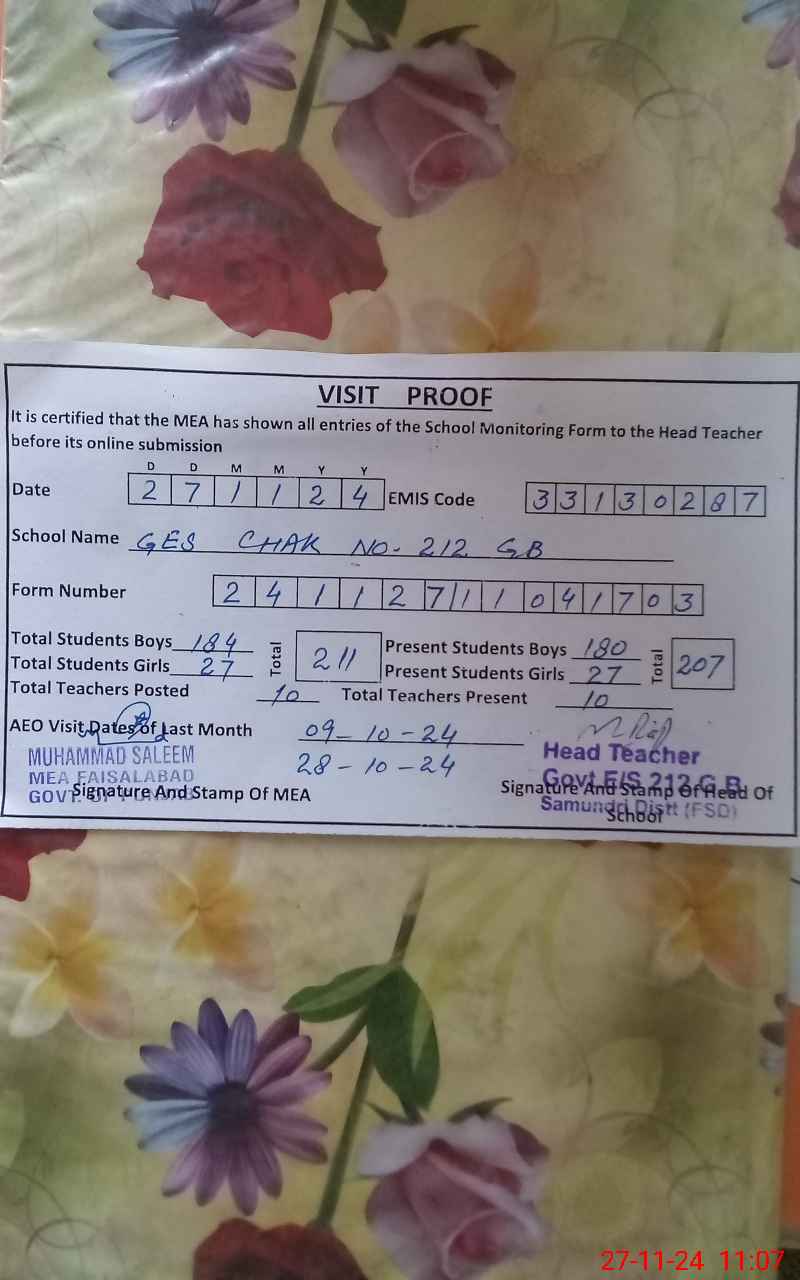 VISIT PROOF
It is certified that the MEA has shown all entries of the School Monitoring Form to the Head Teacher
before its online submission
D D M M Y Y
Date 2 7 1 1 2 4 EMIS Code 3 3 1 3 0 2 8 7
School Name GES CHAK NO. 212 GB
Form Number 2 4 1 1 2 7 1 1 0 4 1 7 0 3
Total Students Boys 184 Total 211 Present Students Boys 180 Total 207
Total Students Girls 27 Present Students Girls 27
Total Teachers Posted 10 Total Teachers Present 10
AEO Visit Dates of Last Month 09-10-24
28-10-24
MUHAMMAD SALEEM
MEA FAISALABAD
GOVT. OF
Signature And Stamp Of MEA
Head Teacher
Govt E/S 212 G.B
Samundri Distt (FSD)
Signature And Stamp Of Head Of
School
27-11-24 11:07